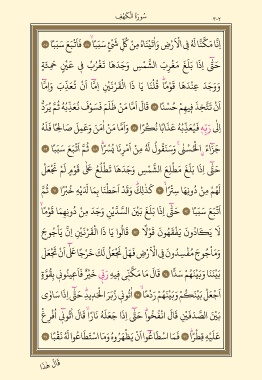 سُورَةُ الْكَهْفِ ٣٠٢
اِنَّا مَكَّنَّا لَهُ فِي الْاَرْضِ وَاٰتَيْنَاهُ مِنْ كُلِّ شَيْءٍ سَبَبًا ۞ فَاَتْبَعَ سَبَبًا ۞
حَتّٰٓى اِذَا بَلَغَ مَغْرِبَ الشَّمْسِ وَجَدَهَا تَغْرُبُ فِي عَيْنٍ حَمِئَةٍ
وَوَجَدَ عِنْدَهَا قَوْمًا قُلْنَا يَا ذَا الْقَرْنَيْنِ اِمَّٓا اَنْ تُعَذِّبَ وَاِمَّٓا
اَنْ تَتَّخِذَ فِيهِمْ حُسْنًا ۞ قَالَ اَمَّا مَنْ ظَلَمَ فَسَوْفَ نُعَذِّبُهُ ثُمَّ يُرَدُّ
اِلٰى رَبِّهِ فَيُعَذِّبُهُ عَذَابًا نُكْرًا ۞ وَاَمَّا مَنْ اٰمَنَ وَعَمِلَ صَالِحًا فَلَهُ
جَزَٓاءً الْحُسْنٰى وَسَنَقُولُ لَهُ مِنْ اَمْرِنَا يُسْرًا ۞ ثُمَّ اَتْبَعَ سَبَبًا ۞
حَتّٰٓى اِذَا بَلَغَ مَطْلِعَ الشَّمْسِ وَجَدَهَا تَطْلُعُ عَلٰى قَوْمٍ لَمْ نَجْعَلْ
لَهُمْ مِنْ دُونِهَا سِتْرًا ۞ كَذٰلِكَ وَقَدْ اَحَطْنَا بِمَا لَدَيْهِ خُبْرًا ۞ ثُمَّ
اَتْبَعَ سَبَبًا ۞ حَتّٰٓى اِذَا بَلَغَ بَيْنَ السَّدَّيْنِ وَجَدَ مِنْ دُونِهِمَا قَوْمًا
لَا يَكَادُونَ يَفْقَهُونَ قَوْلًا ۞ قَالُوا يَا ذَا الْقَرْنَيْنِ اِنَّ يَأْجُوجَ
وَمَأْجُوجَ مُفْسِدُونَ فِي الْاَرْضِ فَهَلْ نَجْعَلُ لَكَ خَرْجًا عَلٰٓى اَنْ تَجْعَلَ
بَيْنَنَا وَبَيْنَهُمْ سَدًّا ۞ قَالَ مَا مَكَّنِّي فِيهِ رَبِّي خَيْرٌ فَاَعِينُونِي بِقُوَّةٍ
اَجْعَلْ بَيْنَكُمْ وَبَيْنَهُمْ رَدْمًا ۞ اٰتُونِي زُبَرَ الْحَدِيدِ حَتّٰٓى اِذَا سَاوٰى
بَيْنَ الصَّدَفَيْنِ قَالَ انْفُخُوا حَتّٰٓى اِذَا جَعَلَهُ نَارًا قَالَ اٰتُونِٓي اُفْرِغْ
عَلَيْهِ قِطْرًا ۞ فَمَا اسْطَاعُٓوا اَنْ يَظْهَرُوهُ وَمَا اسْتَطَاعُوا لَهُ نَقْبًا ۞
قَالَ هٰذَا